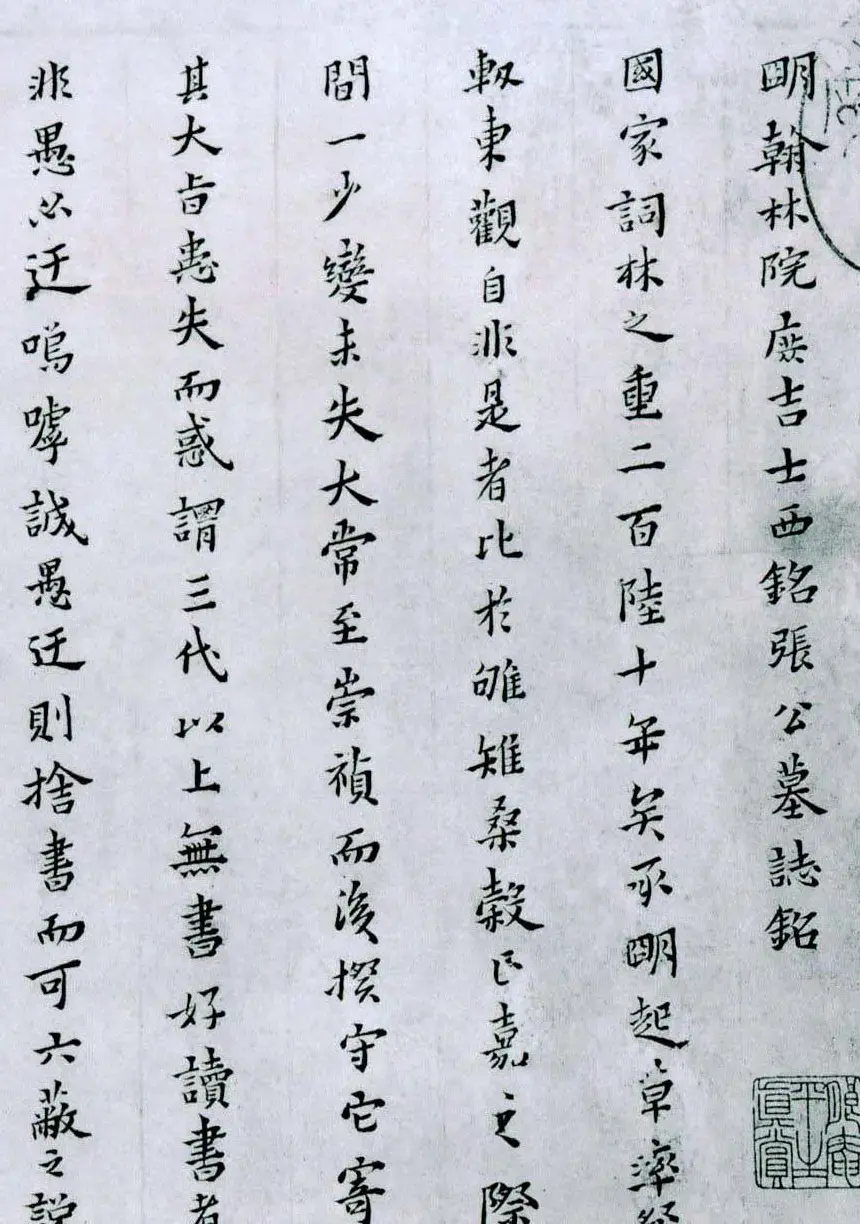 明翰林院庶吉士西銘張公墓誌銘
國家詞林之重二百陸十年矣承明起草率
軔東觀自非是者比於雊雉桑穀正嘉之際
間一少變未失大常至崇禎而後揆守它寄
其大旨患失而惑謂三代以上無書好讀書者
非愚必迂嗚嘑誠愚迂則捨書而可六蔽之說